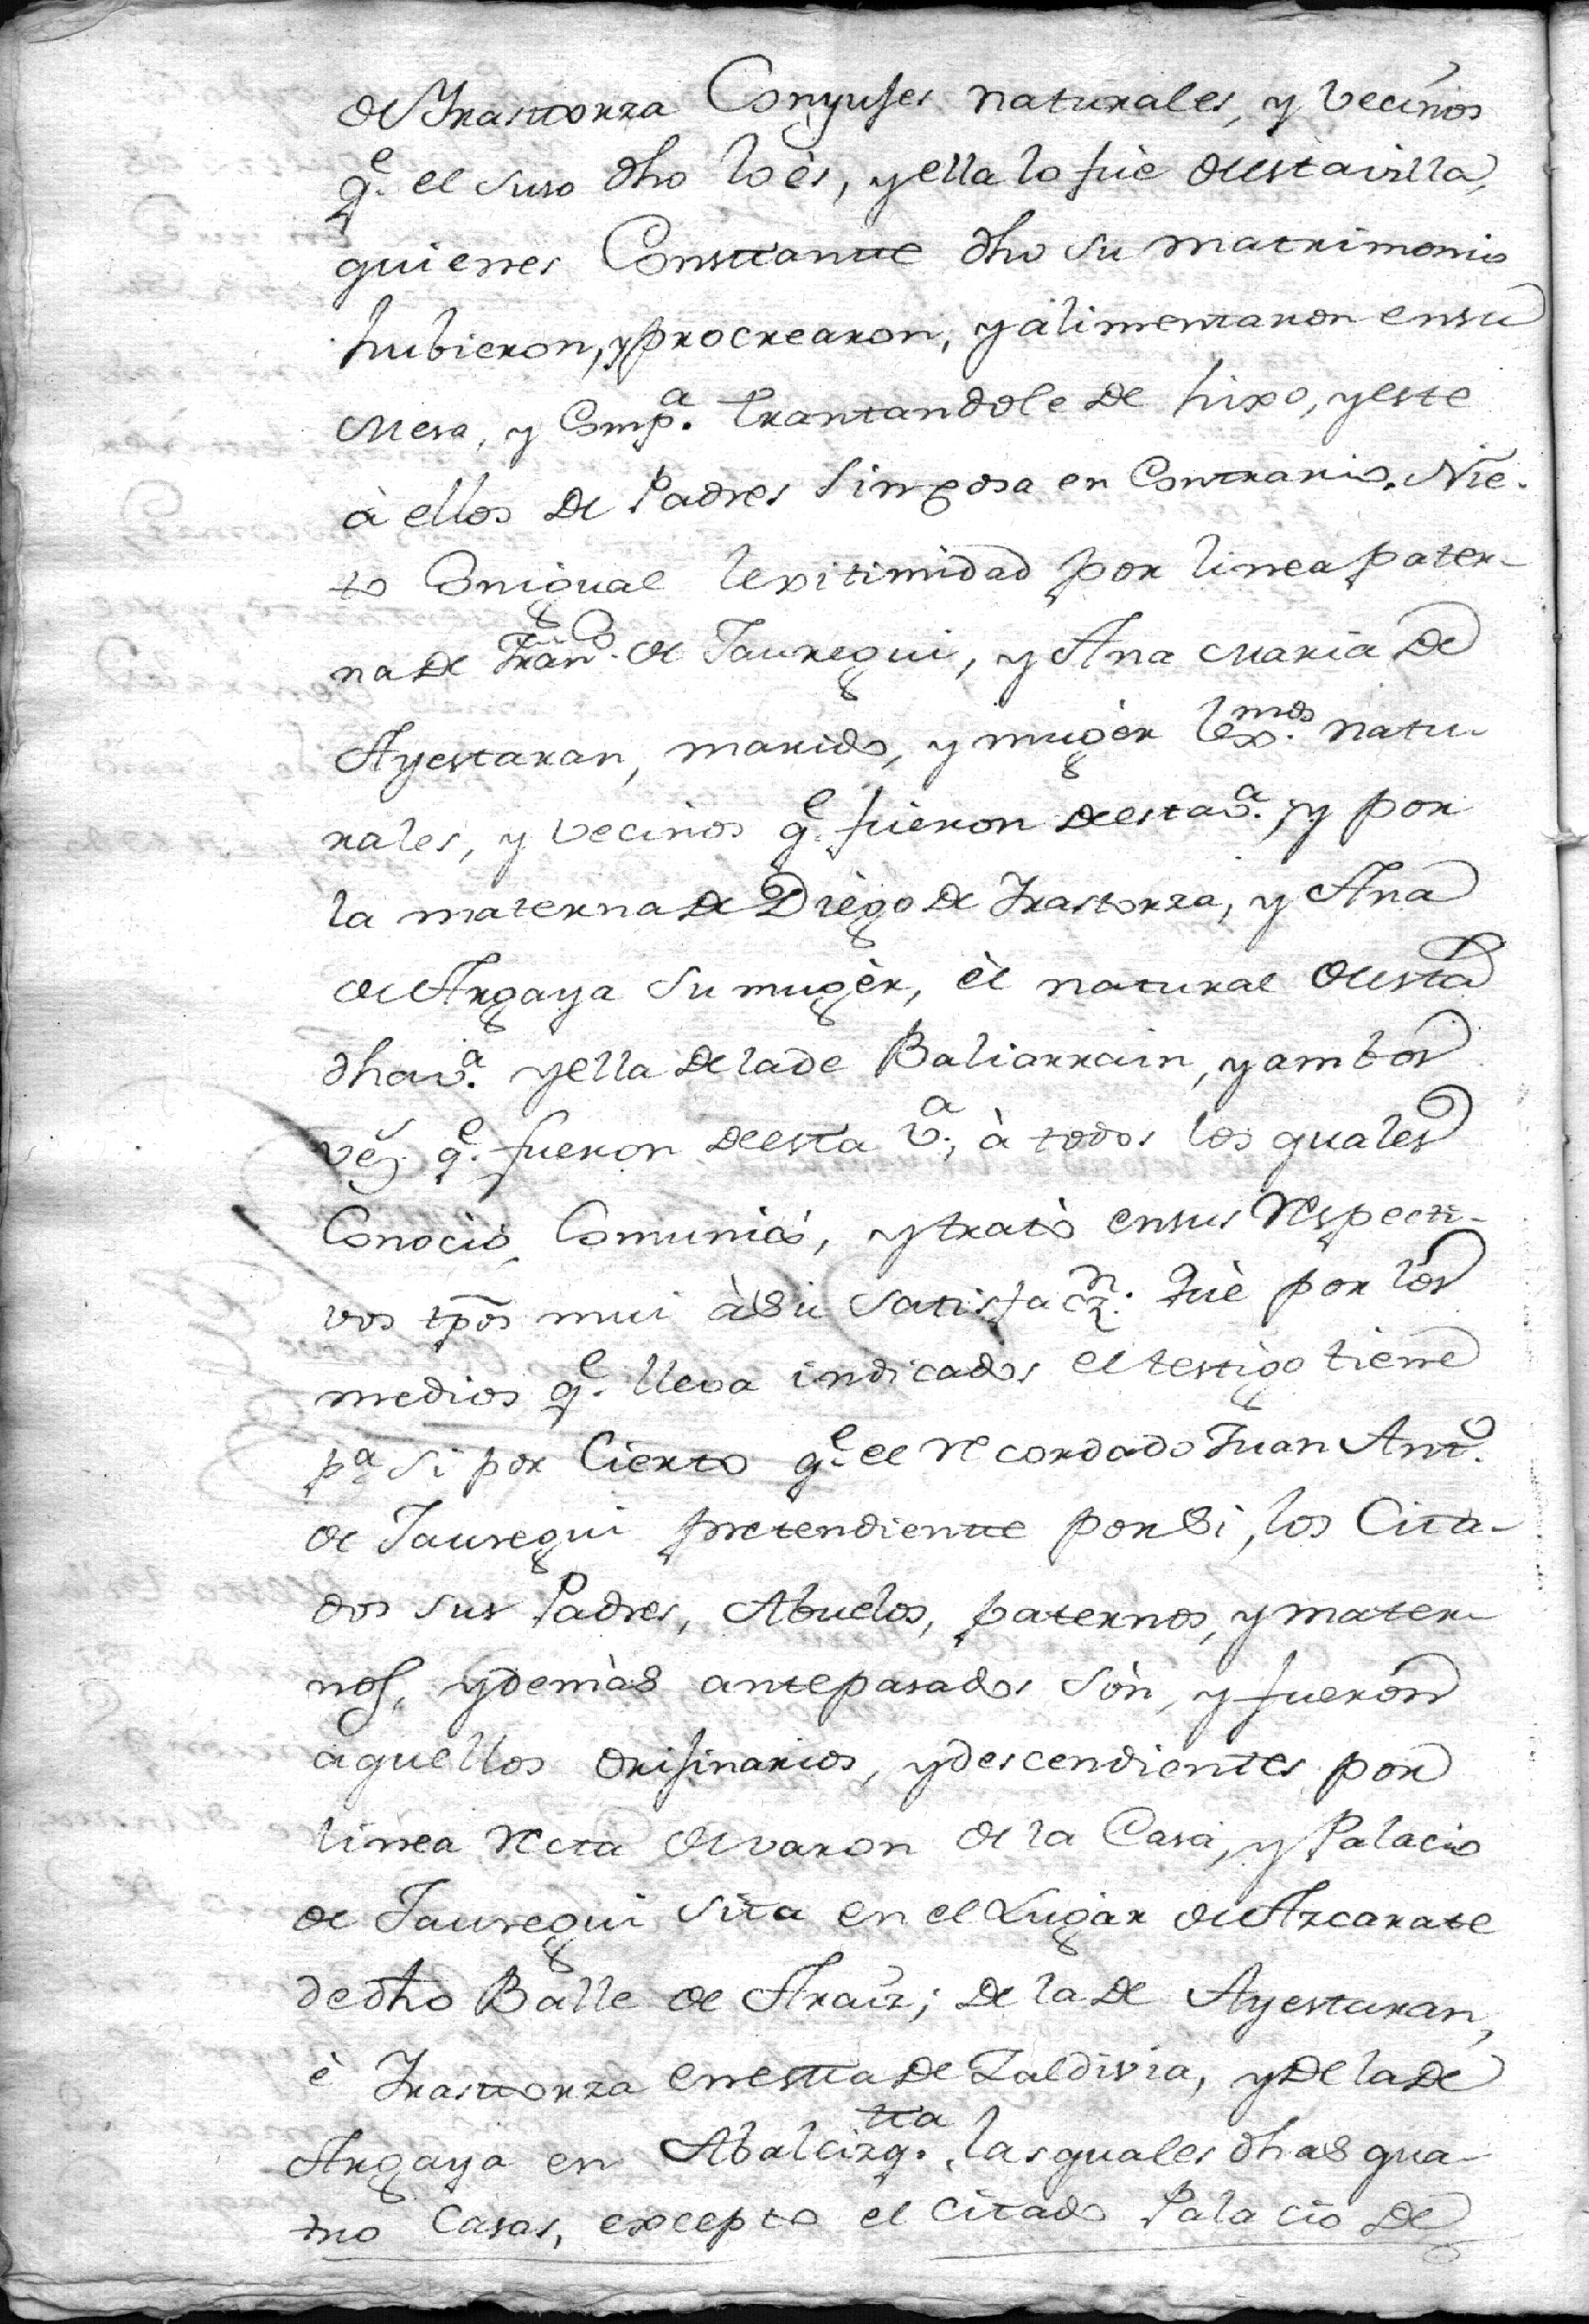 de Yrastorza Conyujes naturales, y vecinos
q.e el suso dho lo ès, y ella lo fuè de esta villa,
quienes Constante dho su matrimonio
hubieron, y procrearon, y alimentaron en su
Mesa, y Comp.a tratandole de hixo, y este
à ellos de Padres sin cosa en Contrario. Nie-
to Con igual lexitimidad por linea pater-
na de Fran.co de Jauregui, y Ana Maria de
Ayestaran, marido, y mugèr lex.mos natu-
rales, y vecinos q.e fueron de esta v.a y por
la materna de Diego de Yrastorza, y Ana
de Argaya su mugèr, èl natural de esta
dha v.a y ella de la de Baliarrain, y ambos
vez.s q.e fueron de esta v.a, à todos los quales
Conociò, Comunicò, y tratò en sus respecti-
vos tpos mui à su satisfacz.n. Què por los
medios q.e lleva indicados el testigo tiene
p.a si por Cierto q.e el recordado Juan Ant.o
de Jauregui pretendiente por si, los Cita-
dos sus Padres, Abuelos, paternos, y mater-
nos, y demàs antepasados sòn, y fueron
aquellos orijinarios, y descendientes por
linea recta de varon de la Casa, y Palacio
de Jauregui sita en el Lugar de Azcarate
de dho Balle de Araiz; de la de Ayestaran,
è Yrastorza en esta de Zaldivia, y de la de
Argaya en Abalcizq.tia, las quales dhas qua-
tro Casas, excepto el citado Palacio de